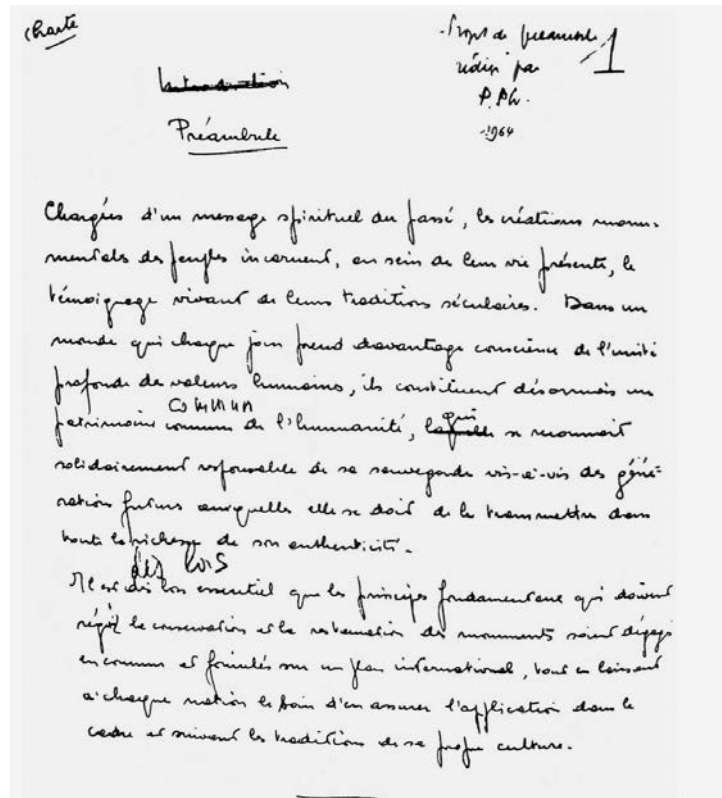 Charte
Projet de préambule 1
rédigé par
P. Ph.
1964
Introduction
Préambule
Chargées d'un message spirituel du passé, les créations monu-
mentales des peuples incarnent, au sein de leur vie présente, le
témoignage vivant de leurs traditions séculaires. Dans un
monde qui chaque jour prend davantage conscience de l'unité
profonde des valeurs humaines, ils constituent désormais un
commun qui
patrimoine commun de l'humanité, laquelle se reconnait
solidairement responsable de sa sauvegarde vis-à-vis des géné-
rations futures auxquelles elle se doit de le transmettre dans
toute la richesse de son authenticité.
dès lors
Il est dès lors essentiel que les principes fondamentaux qui doivent
régir la conservation et la restauration des monuments soient dégagés
en commun et formulés sur un plan international, tout en laissant
à chaque nation le soin d'en assurer l'application dans le
cadre et suivant les traditions de sa propre culture.